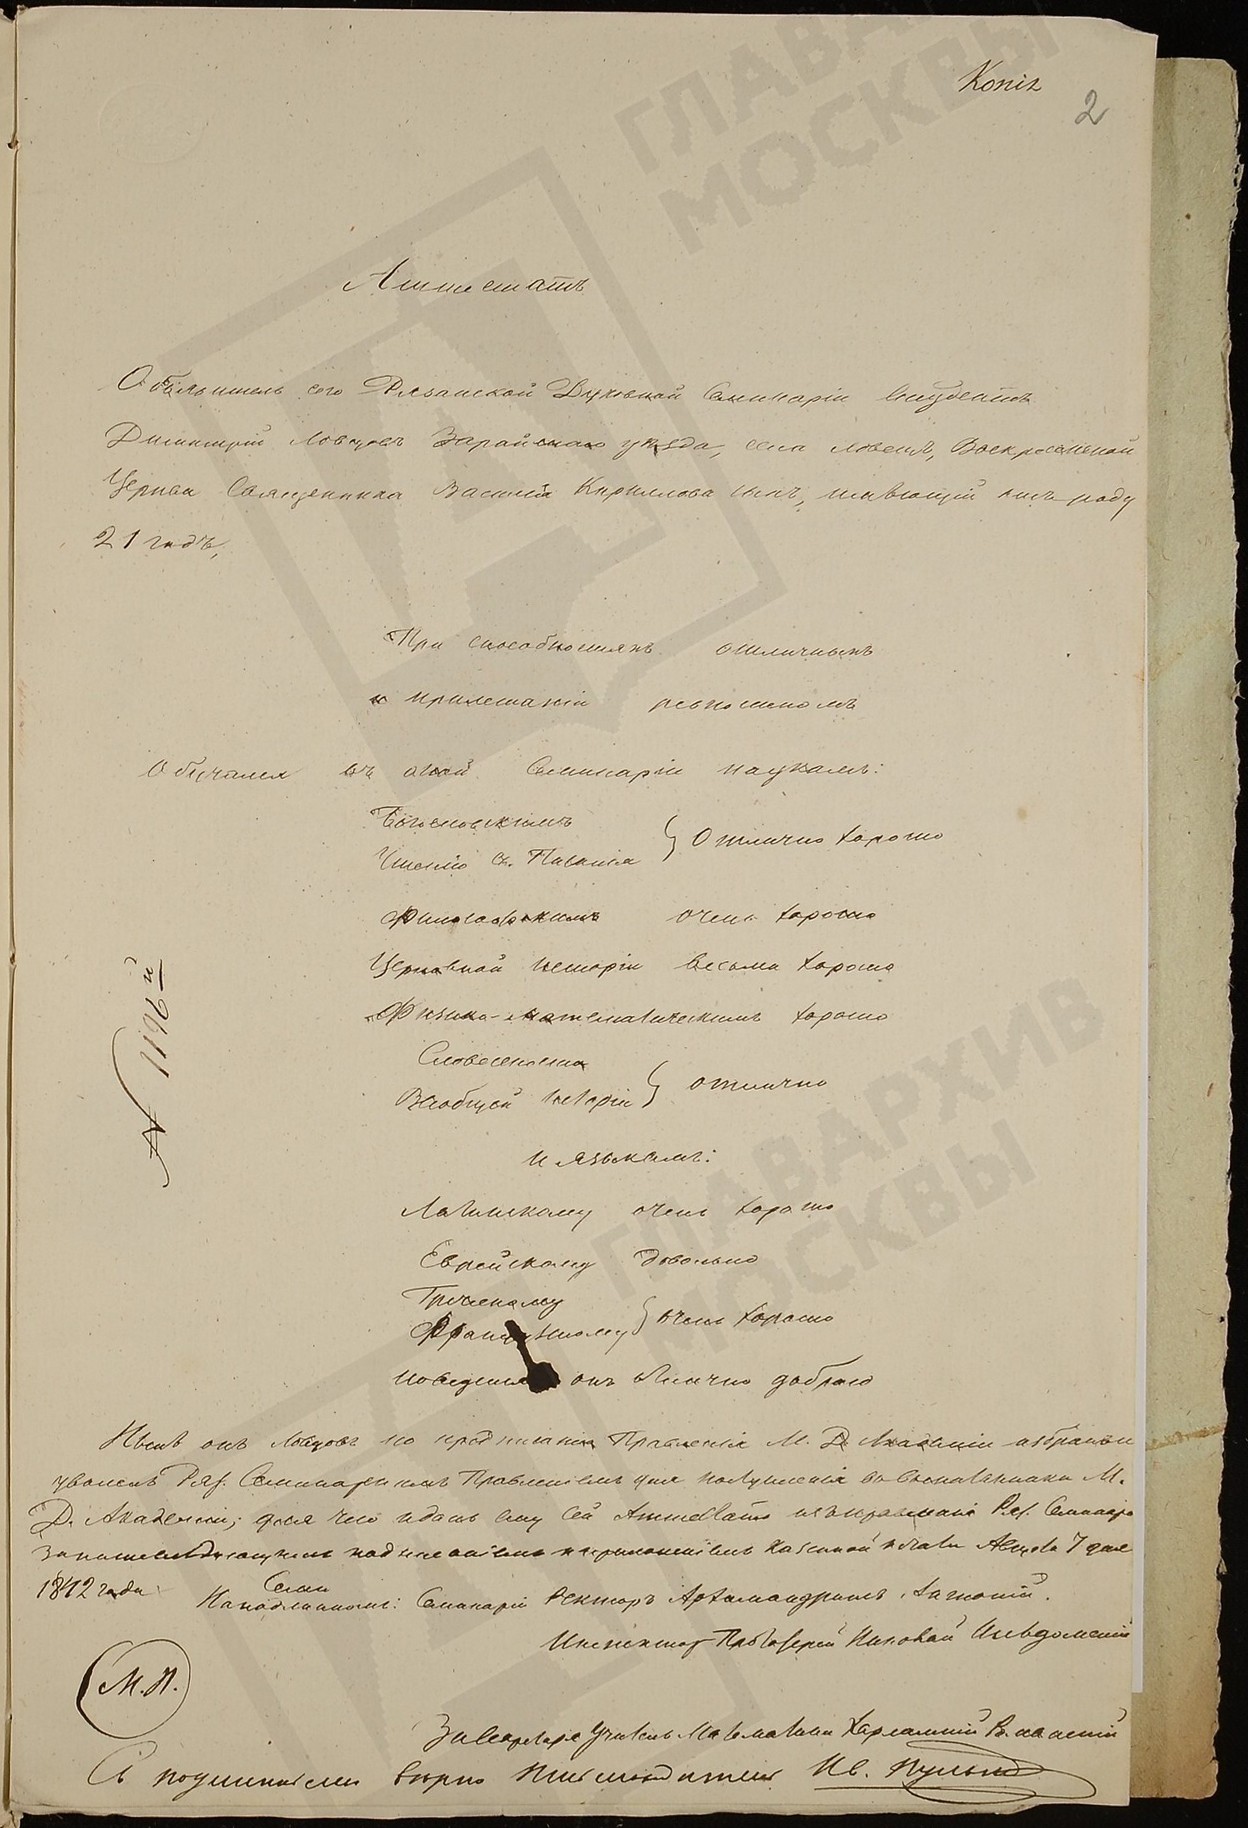 Копія
2
Аттестатъ
Объявитель сего Рязанской Духовной Семинаріи Студентъ
Димитрій Ловцовъ Зарайскаго уѣзда, села Ловецъ, Воскресенской
Церкви Священника Василія Кириллова сынъ, имѣющій отъ роду
21 годъ,
При способностяхъ отличныхъ
и прилежаніи ревностномъ
Обучался въ оной Семинаріи наукамъ:
Богословскимъ
Чтенію Св. Писанія } Отлично хорошо
Философскимъ очень хорошо
Церковной исторіи весьма хорошо
Физико-математическимъ хорошо
Словесности
Всеобщей исторіи } отлично
и языкамъ:
Латинскому очень хорошо
Еврейскому довольно
Греческому
Французскому } очень хорошо
поведенія онъ отлично добраго
№ 1196й
Нынѣ онъ Ловцовъ по предписанію Правленія М. Д. Академіи избранъ и
уволенъ Ряз. Семинарскимъ Правленіемъ для поступленія въ воспитанники М.
Д. Академіи; для чего и данъ ему сей Аттестатъ изъ правленія Ряз. Семинаріи
за надлежащимъ подписаніемъ и приложеніемъ казенной печати Августа 7 дня
1842 года.
На подлинномъ: Семинаріи Ректоръ Архимандритъ
Инспекторъ Протоіерей
М. П.
За Секретаря Учитель Математики Харлампій
Съ подлиннымъ вѣрно Письмоводитель Ив.
ГЛАВАРХИВ
МОСКВЫ
ГЛАВАРХИВ
МОСКВЫ